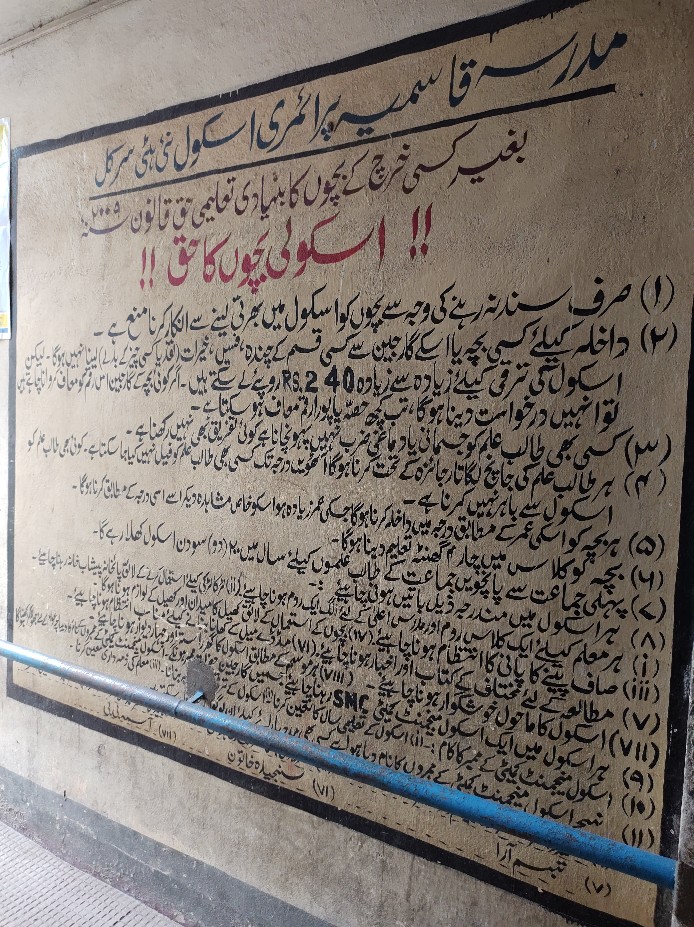 مدرسہ قاسمیہ پرائمری اسکول نئی ہٹی سرکل
بغیر کسی خرچ کے بچوں کا بنیادی تعلیمی حق قانون سنہ ۲۰۰۵
!! اسکولی بچوں کا حق !!
(۱) صرف سند نہ رہنے کی وجہ سے بچوں کو اسکول میں بھرتی لینے سے انکار کرنا منع ہے۔
(۲) داخلہ کیلئے کسی بچہ یا اسکے گارجین سے کسی قسم کے چندہ، فیس، خیرات (نقد یا کسی چیز کے بدلے) لینا نہیں ہوگا۔ لیکن
اسکول کی ترقی کیلئے زیادہ سے زیادہ RS. 240 روپے لے سکتے ہیں۔ اگر کوئی بچہ کے گارجین اس رقم کو معاف کروانا چاہے ہیں
تو انہیں درخواست دینا ہوگا، تب کچھ حصہ یا پورا رقم معاف ہوسکتا ہے۔
(۳) کسی بھی طالب علم کو جسمانی یا دماغی ضرب نہیں پہونچانا ہے کوئی تفریق بھی نہیں رکھنا ہے۔
(۴) ہر طالب علم کی جانچ لگاتار جائزہ کے تحت کرنا ہوگا آٹھویں درجہ تک کسی بھی طالب علم کو فیل نہیں کیا جاسکتا ہے۔ کوئی بھی طالب علم کو
اسکول سے باہر نہیں کرنا ہے۔
(۵) ہر بچہ کو اسکی عمر کے مطابق درجہ میں داخلہ کرنا ہوگا جسکی عمر زیادہ ہو اسکو خاص مشاہدہ دیکر اسے اسی درجہ کے مطابق کرنا ہوگا۔
(۶) بچہ کو کلاس میں چار گھنٹہ تعلیم دینا ہوگا۔
(۷) پہلی جماعت سے پانچویں جماعت کے طالب علموں کیلئے سال میں ۲۰۰ (دو) سو دن اسکول کھلا رہے گا۔
(۸) ہر اسکول میں مندرجہ ذیل باتیں ہونی چاہیئے :-
(i) ہر معلم کیلئے ایک کلاس روم اور ہونا چاہیئے (ii) لڑکا لڑکی کیلئے استعمال کرنے کے لائق
(iii) صاف پینے کا پانی کا انتظام ہونا چاہیئے (iv) بچوں کے استعمال کے لائق کھیل کا میدان اور کھیل کے لوازمہ ہونا
(v) مطالعہ کے لئے مختلف کتاب اور اخبار ہونا چاہیئے (vi) کیلئے انتظام ہونا چاہیئے۔
(vii) اسکول کا ماحول خوشگوار ہونا چاہیئے۔ (viii)
(۹) ہر اسکول میں ایک اسکول مینجمنٹ کمیٹی SMC رہنا چاہیئے جسمیں گارجین
(۱۰) اسکول مینجمنٹ کمیٹی کے ممبر کا کام :-
(۱۱) اسکول مینجمنٹ کمیٹی کے ممبروں کا نام
(v) تبسم آرا
(vi) سنجیدہ خاتون
(vii)